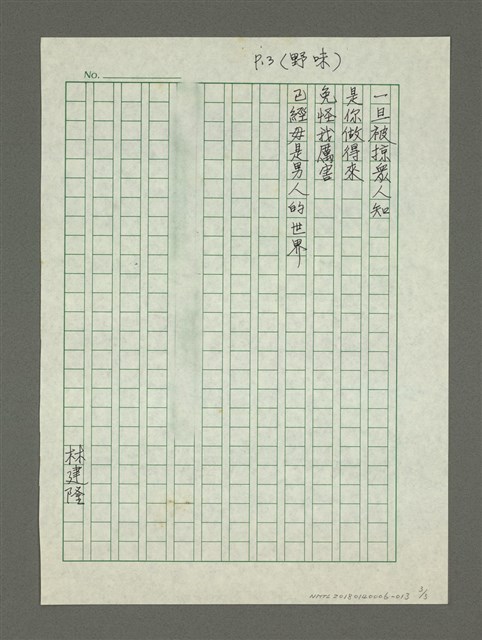 P.3（野味）
No.
一旦被掠眾人知
是你做得來
免怪我厲害
已經毋是男人的世界
林建隆
NMTL20180120006-013 3/3